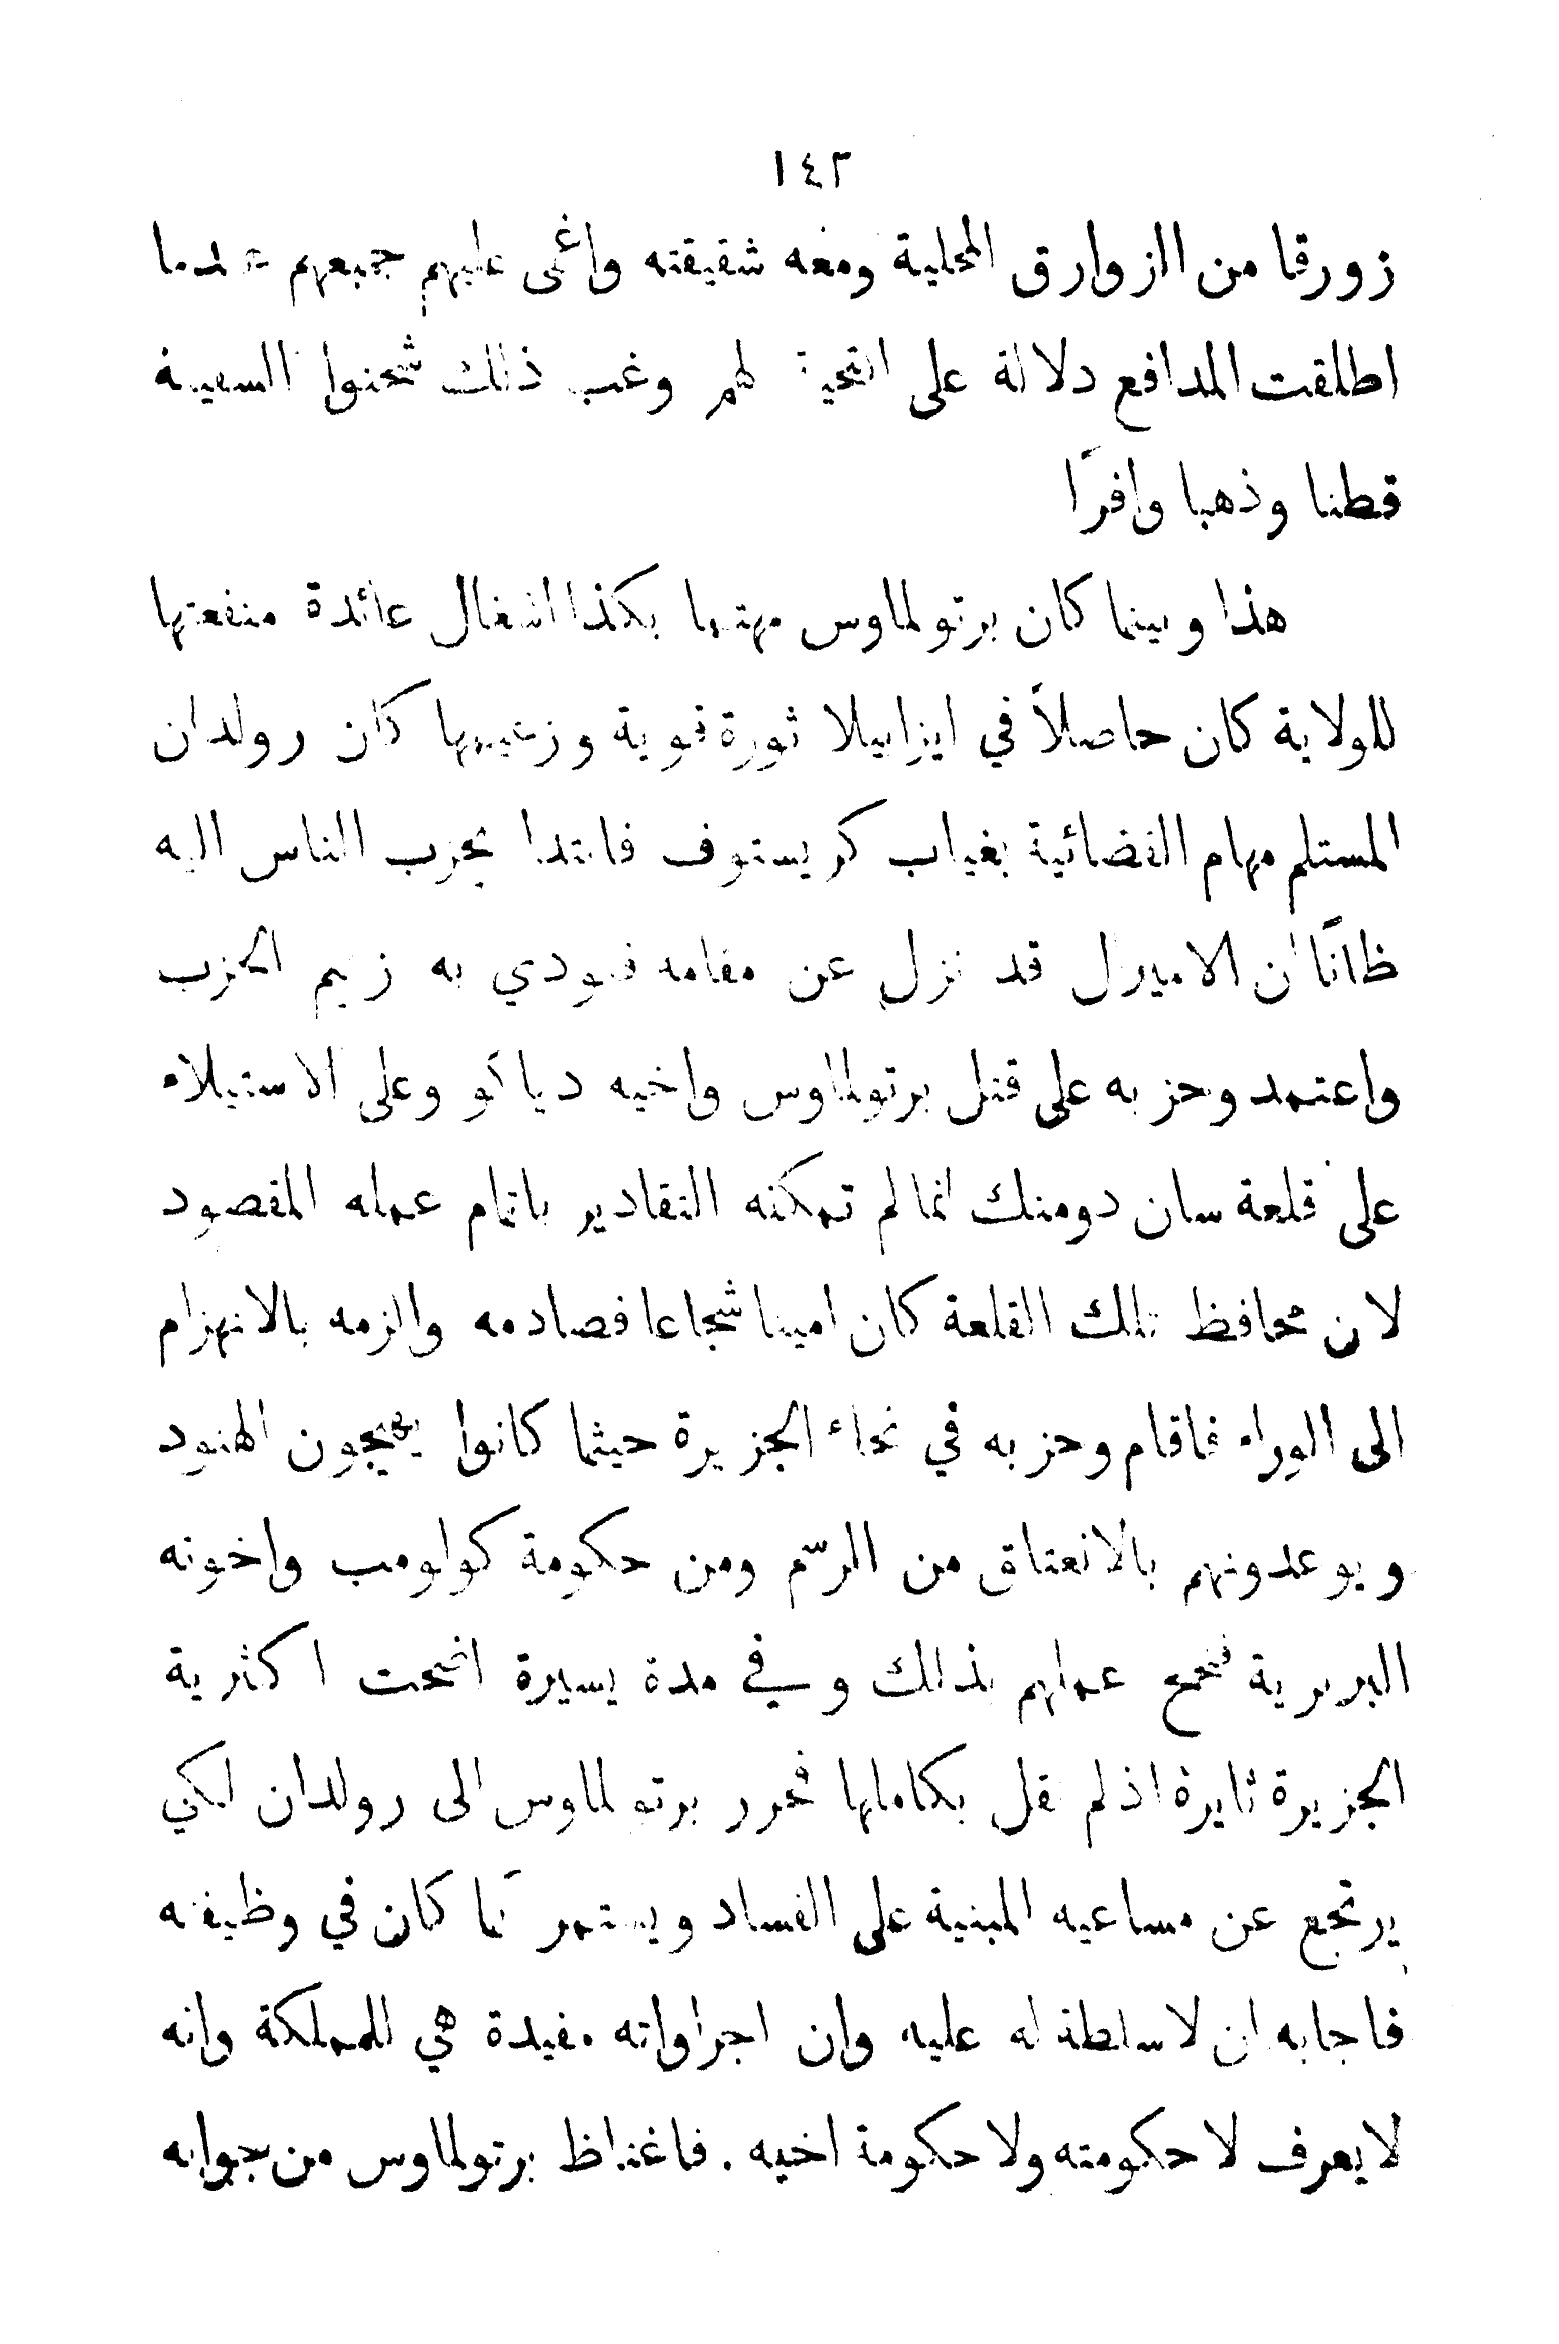 ١٤٢
زورقا من الزوارق المحلية ومعه شقيقته واغمى عليهم جميعهم عندما
اطلقت المدافع دلالة على التحية لهم وغب ذلك شحنوا السفينة
قطنا وذهبا وافرًا
هذا وبينما كان برتولماوس مهتما بكذا اشغال عائدة منفعتها
للولاية كان حاصلاً في ايزابيلا ثورة قوية وزعيمها كان رولدان
المستلم مهام القضائية بغياب كريستوف فابتدا يحزب الناس اليه
ظانًا ان الاميرل قد نزل عن مقامه فنودي به زعيم الحزب
واعتمد وحزبه على قتل برتولماوس واخيه دياكو وعلى الاستيلاء
على قلعة سان دومنك انما لم تمكنه التقادير باتمام عمله المقصود
لان محافظ تلك القلعة كان امينا شجاعا فصادمه والزمه بالانهزام
الى الوراء فاقام وحزبه في نحاء الجزيرة حيثما كانوا يهيجون الهنود
ويوعدونهم بالانعتاق من الرسّم ومن حكومة كولومب واخوته
البربرية فنجح عملهم بذلك وفي مدة يسيرة اضحت اكثرية
الجزيرة ثايرة اذ لم نقل بكاملها فحرر برتولماوس الى رولدان لكي
يرتجع عن مساعيه المبنية على الفساد ويستمر كما كان في وظيفته
فاجابه ان لا سلطة له عليه وان اجراواته مفيدة هي للمملكة وانه
لا يعرف لا حكومته ولا حكومة اخيه . فاغتاظ برتولماوس من جوابه